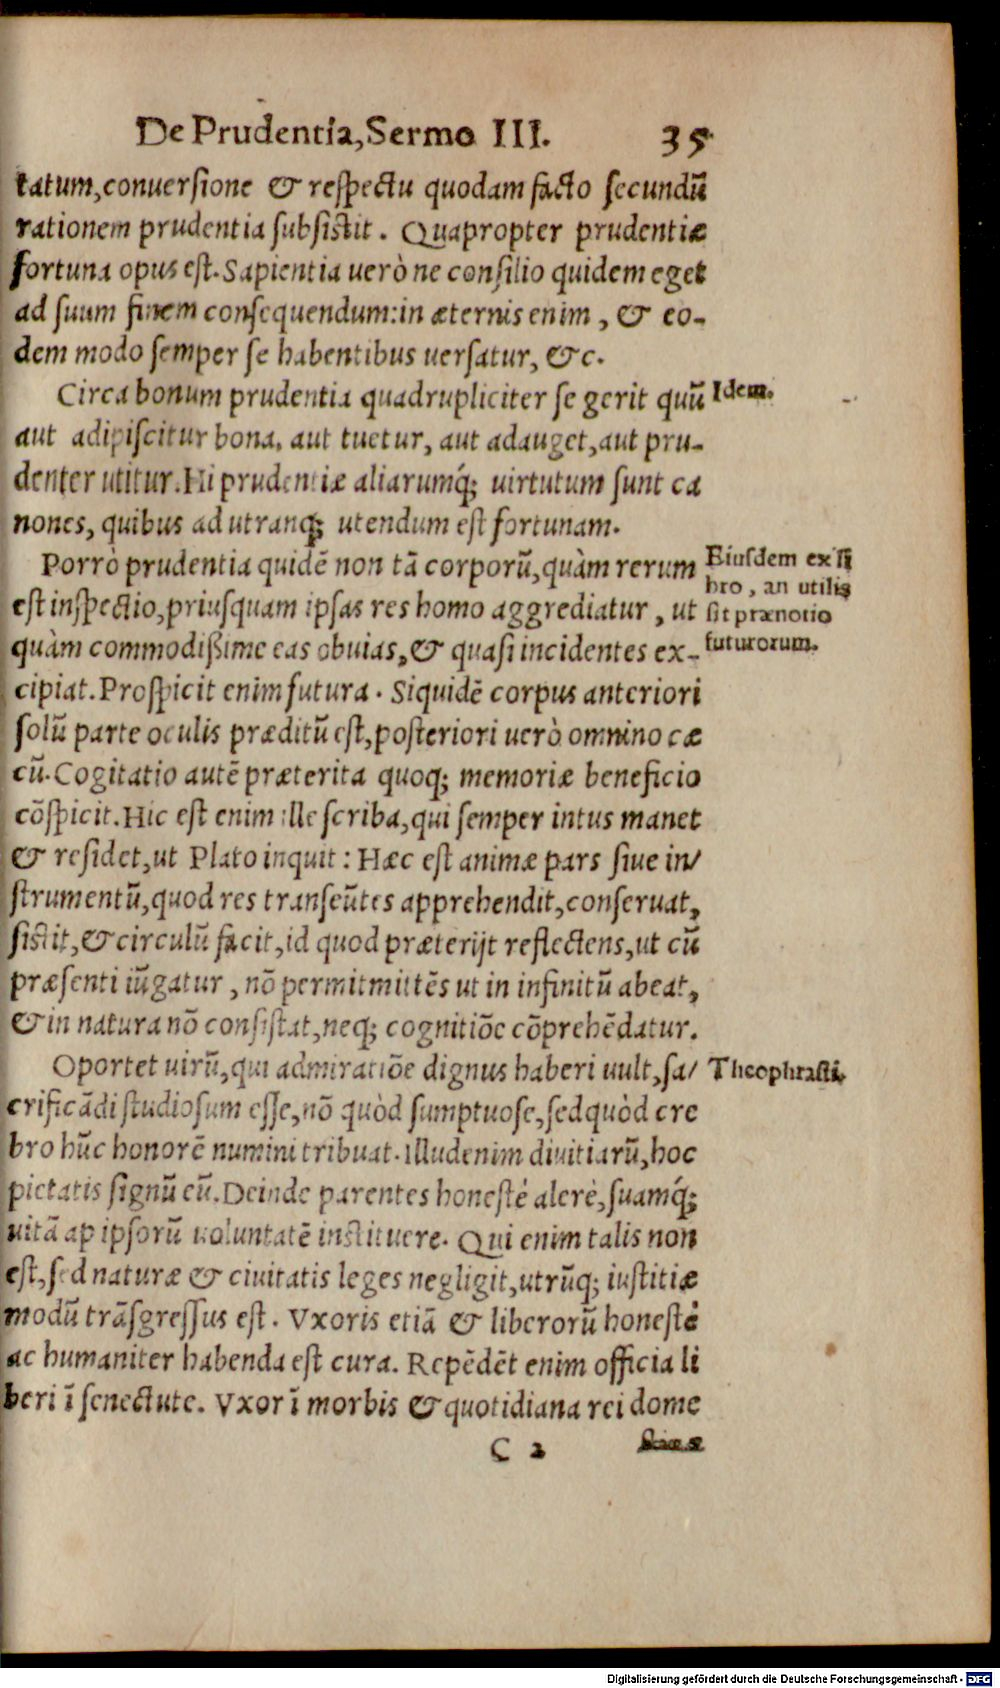 De Prudentia, Sermo III. 35
tatum, conuersione & respectu quodam facto secundũ
rationem prudentia subsistit. Quapropter prudentiæ
fortuna opus est. Sapientia uerò ne consilio quidem eget
ad suum finem consequendum: in æternis enim, & eo-
dem modo semper se habentibus uersatur, &c.
Circa bonum prudentia quadrupliciter se gerit quũ
Idem.
aut adipiscitur bona, aut tuetur, aut adauget, aut pru-
denter utitur. Hi prudentiæ aliarumq́; uirtutum sunt ca
nones, quibus ad utranq; utendum est fortunam.
Porrò prudentia quidẽ non tã corporũ, quàm rerum
est inspectio, priusquam ipsas res homo aggrediatur, ut
quàm commodißime eas obuias, & quasi incidentes ex-
Eiusdem ex li
bro, an utilis
sit prænotio
futurorum.
cipiat. Prospicit enim futura. Siquidẽ corpus anteriori
solũ parte oculis præditũ est, posteriori uerò omnino cæ
cũ. Cogitatio autẽ præterita quoq; memoriæ beneficio
cõspicit. Hic est enim ille scriba, qui semper intus manet
& residet, ut Plato inquit: Hæc est animæ pars siue in/
strumentũ, quod res transeũtes apprehendit, conseruat,
sistit, & circulũ facit, id quod præterijt reflectens, ut cũ
præsenti iũgatur, nõ permitmittẽs ut in infinitũ abeat,
& in natura nõ consistat, neq; cognitiõe cõprehẽdatur.
Oportet uirũ, qui admiratiõe dignus haberi uult, sa/
Theophrasti.
crificãdi studiosum esse, nõ quòd sumptuose, sed quòd cre
bro hũc honorẽ numini tribuat. Illud enim diuitiarũ, hoc
pietatis signũ eũ. Deinde parentes honestè alere, suamq́;
uitã ap ipsorũ uoluntatẽ instituere. Qui enim talis non
est, sed naturæ & ciuitatis leges negligit, utrũq; iustitiæ
modũ trãsgressus est. Vxoris etiã & liberorũ honestè
ac humaniter habenda est cura. Repẽdẽt enim officia li
beri ĩ senectute. Vxor ĩ morbis & quotidiana rei dome
C 2
Digitalisierung gefördert durch die Deutsche Forschungsgemeinschaft - DFG